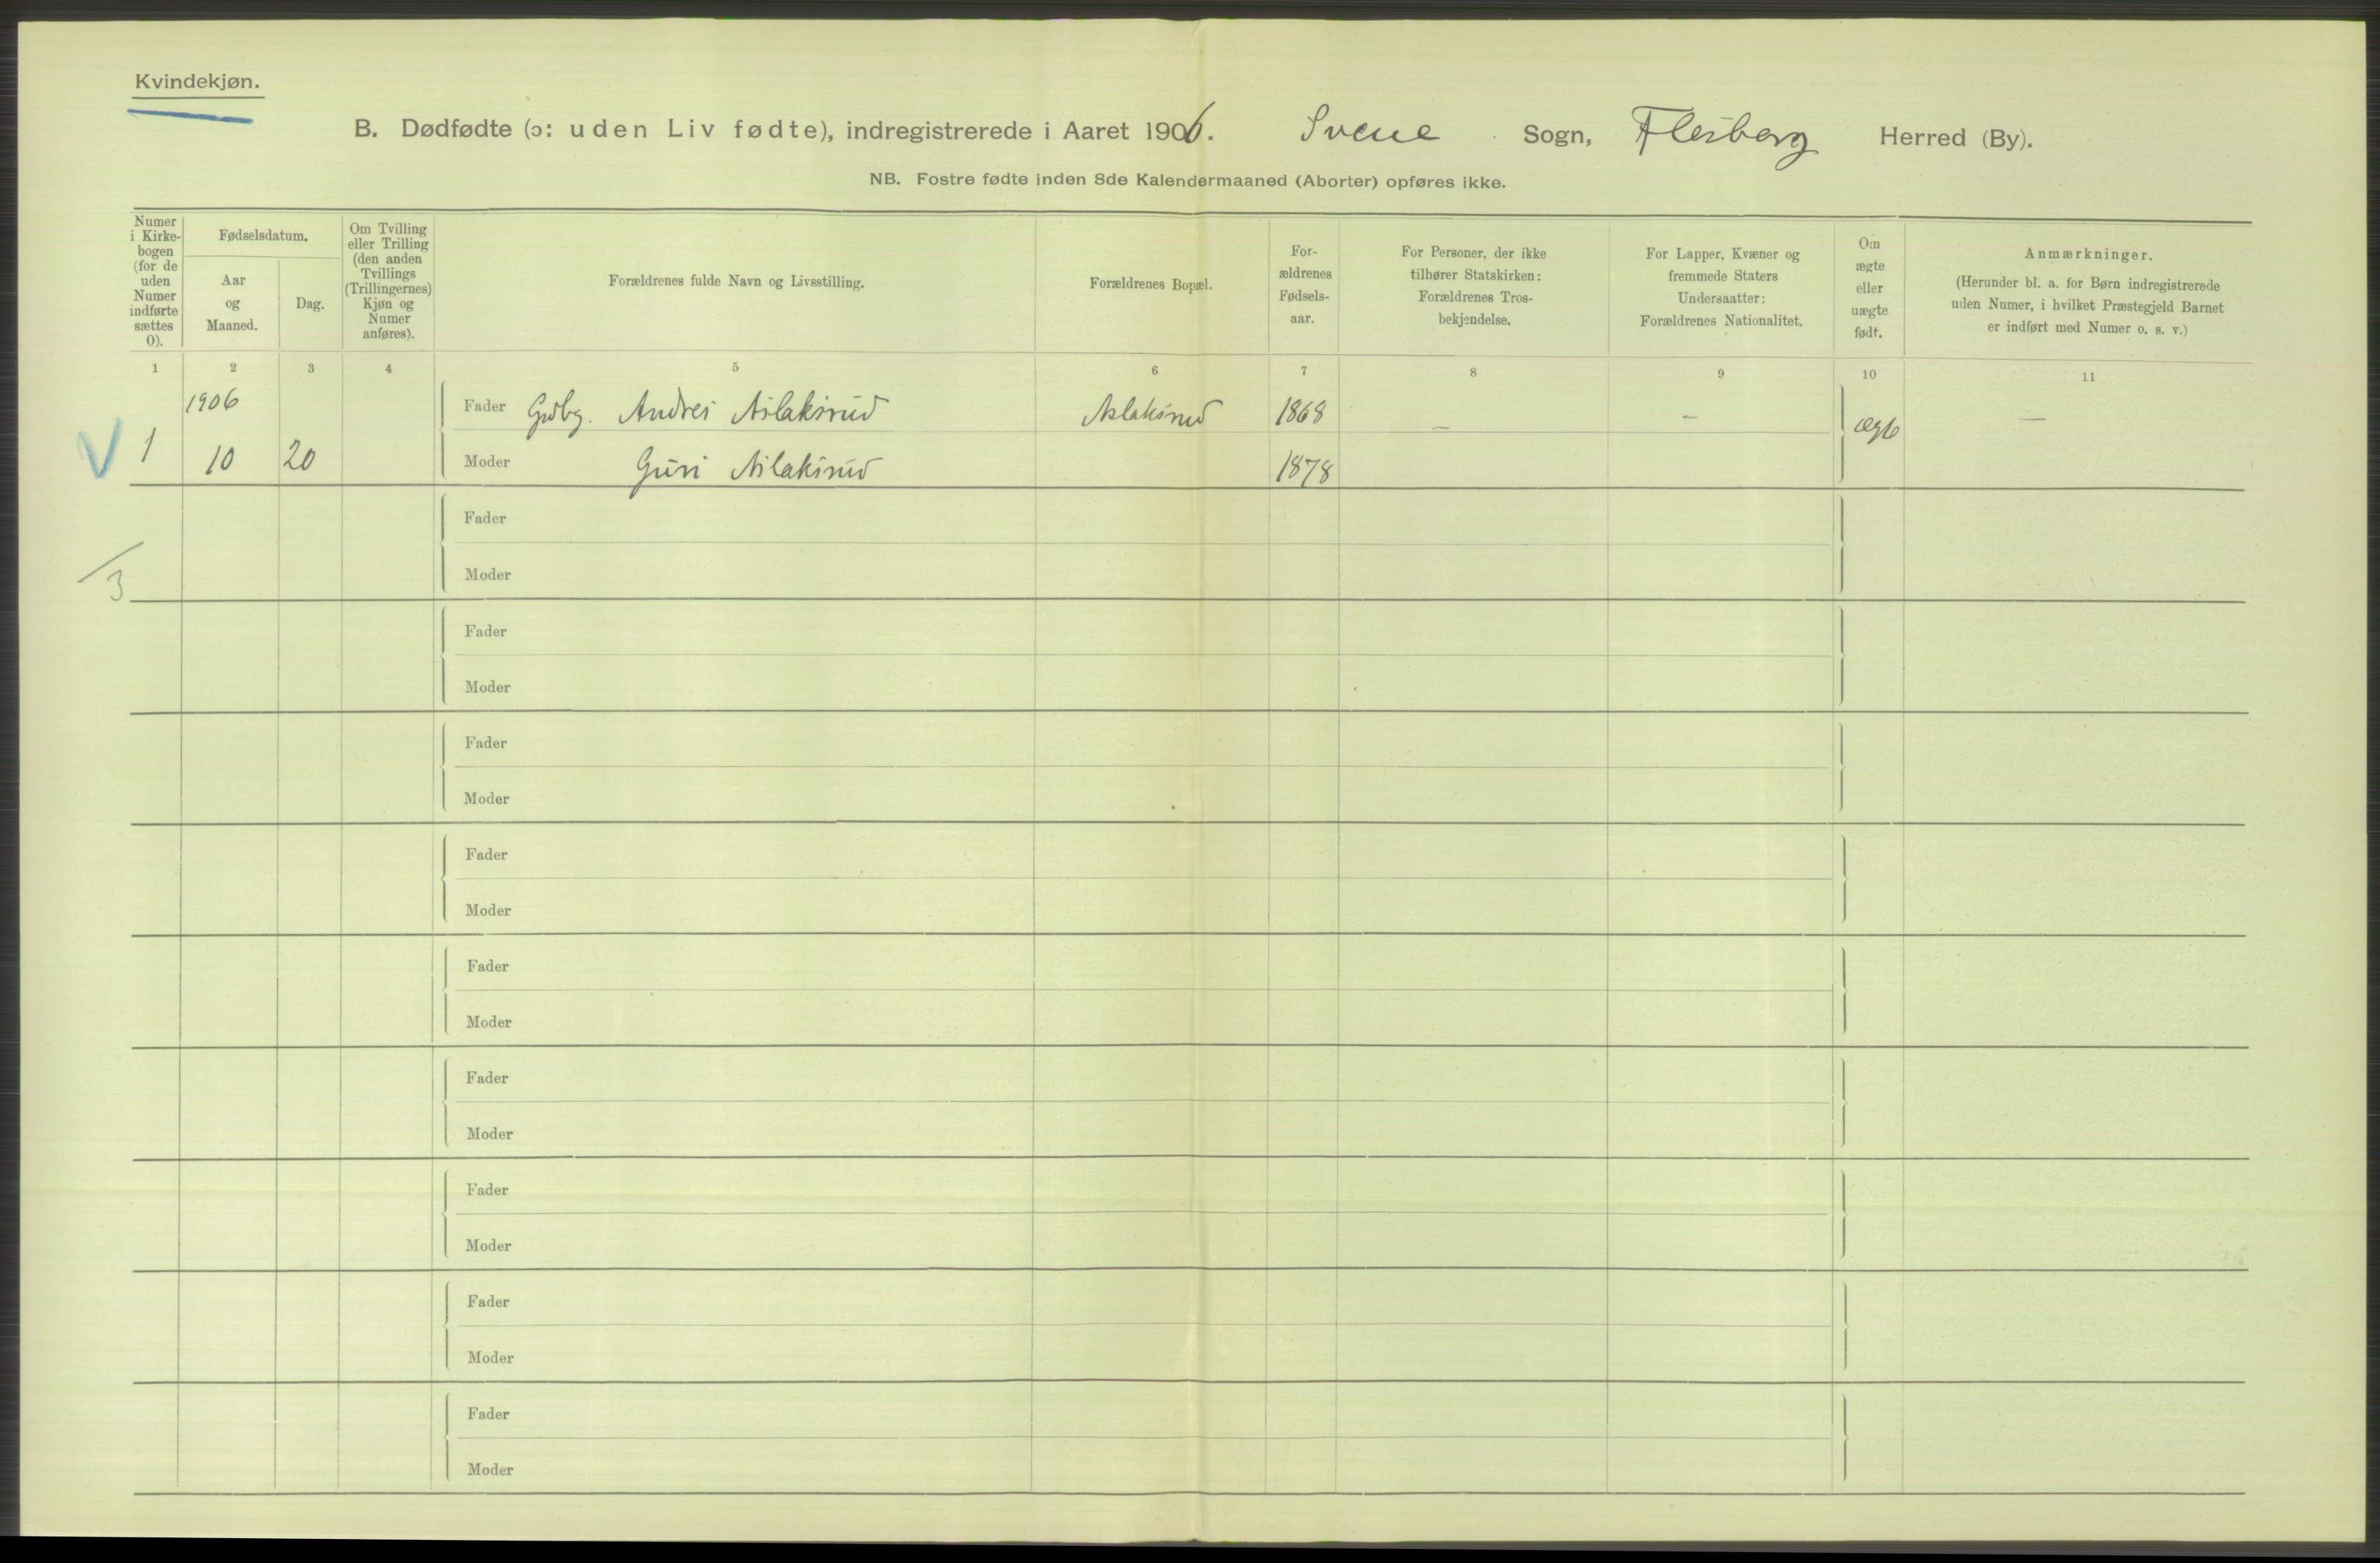 Kvindekjøn.
B. Dødfødte (ɔ: uden Liv fødte), indregistrerede i Aaret 1906. Svene Sogn, Flesberg Herred (By).
NB. Fostre fødte inden 8de Kalendermaaned (Aborter) opføres ikke.
Numer
i Kirke-
bogen
(for de
uden
Numer
indførte
sættes
0).
Fødselsdatum.
Aar
og
Maaned.
Dag.
Om Tvilling
eller Trilling
(den anden
Tvillings
(Trillingernes)
Kjøn og
Numer
anføres).
Forældrenes fulde Navn og Livsstilling.
Forældrenes Bopæl.
For-
ældrenes
Fødsels-
aar.
For Personer, der ikke
tilhører Statskirken:
Forældrenes Tros-
bekjendelse.
For Lapper, Kvæner og
fremmede Staters
Undersaatter:
Forældrenes Nationalitet.
Om
ægte
eller
uægte
født.
Anmærkninger.
(Herunder bl. a. for Børn indregistrerede
uden Numer, i hvilket Præstegjeld Barnet
er indført med Numer o. s. v.)
1 2 3 4 5 6 7 8 9 10 11
1906 Fader Gdbg. Andres Aslaksrud Aslaksrud 1868 – – ægte –
V 1 10 20 Moder Guri Aslaksrud 1878
Fader
/3 Moder
Fader
Moder
Fader
Moder
Fader
Moder
Fader
Moder
Fader
Moder
Fader
Moder
Fader
Moder
Fader
Moder